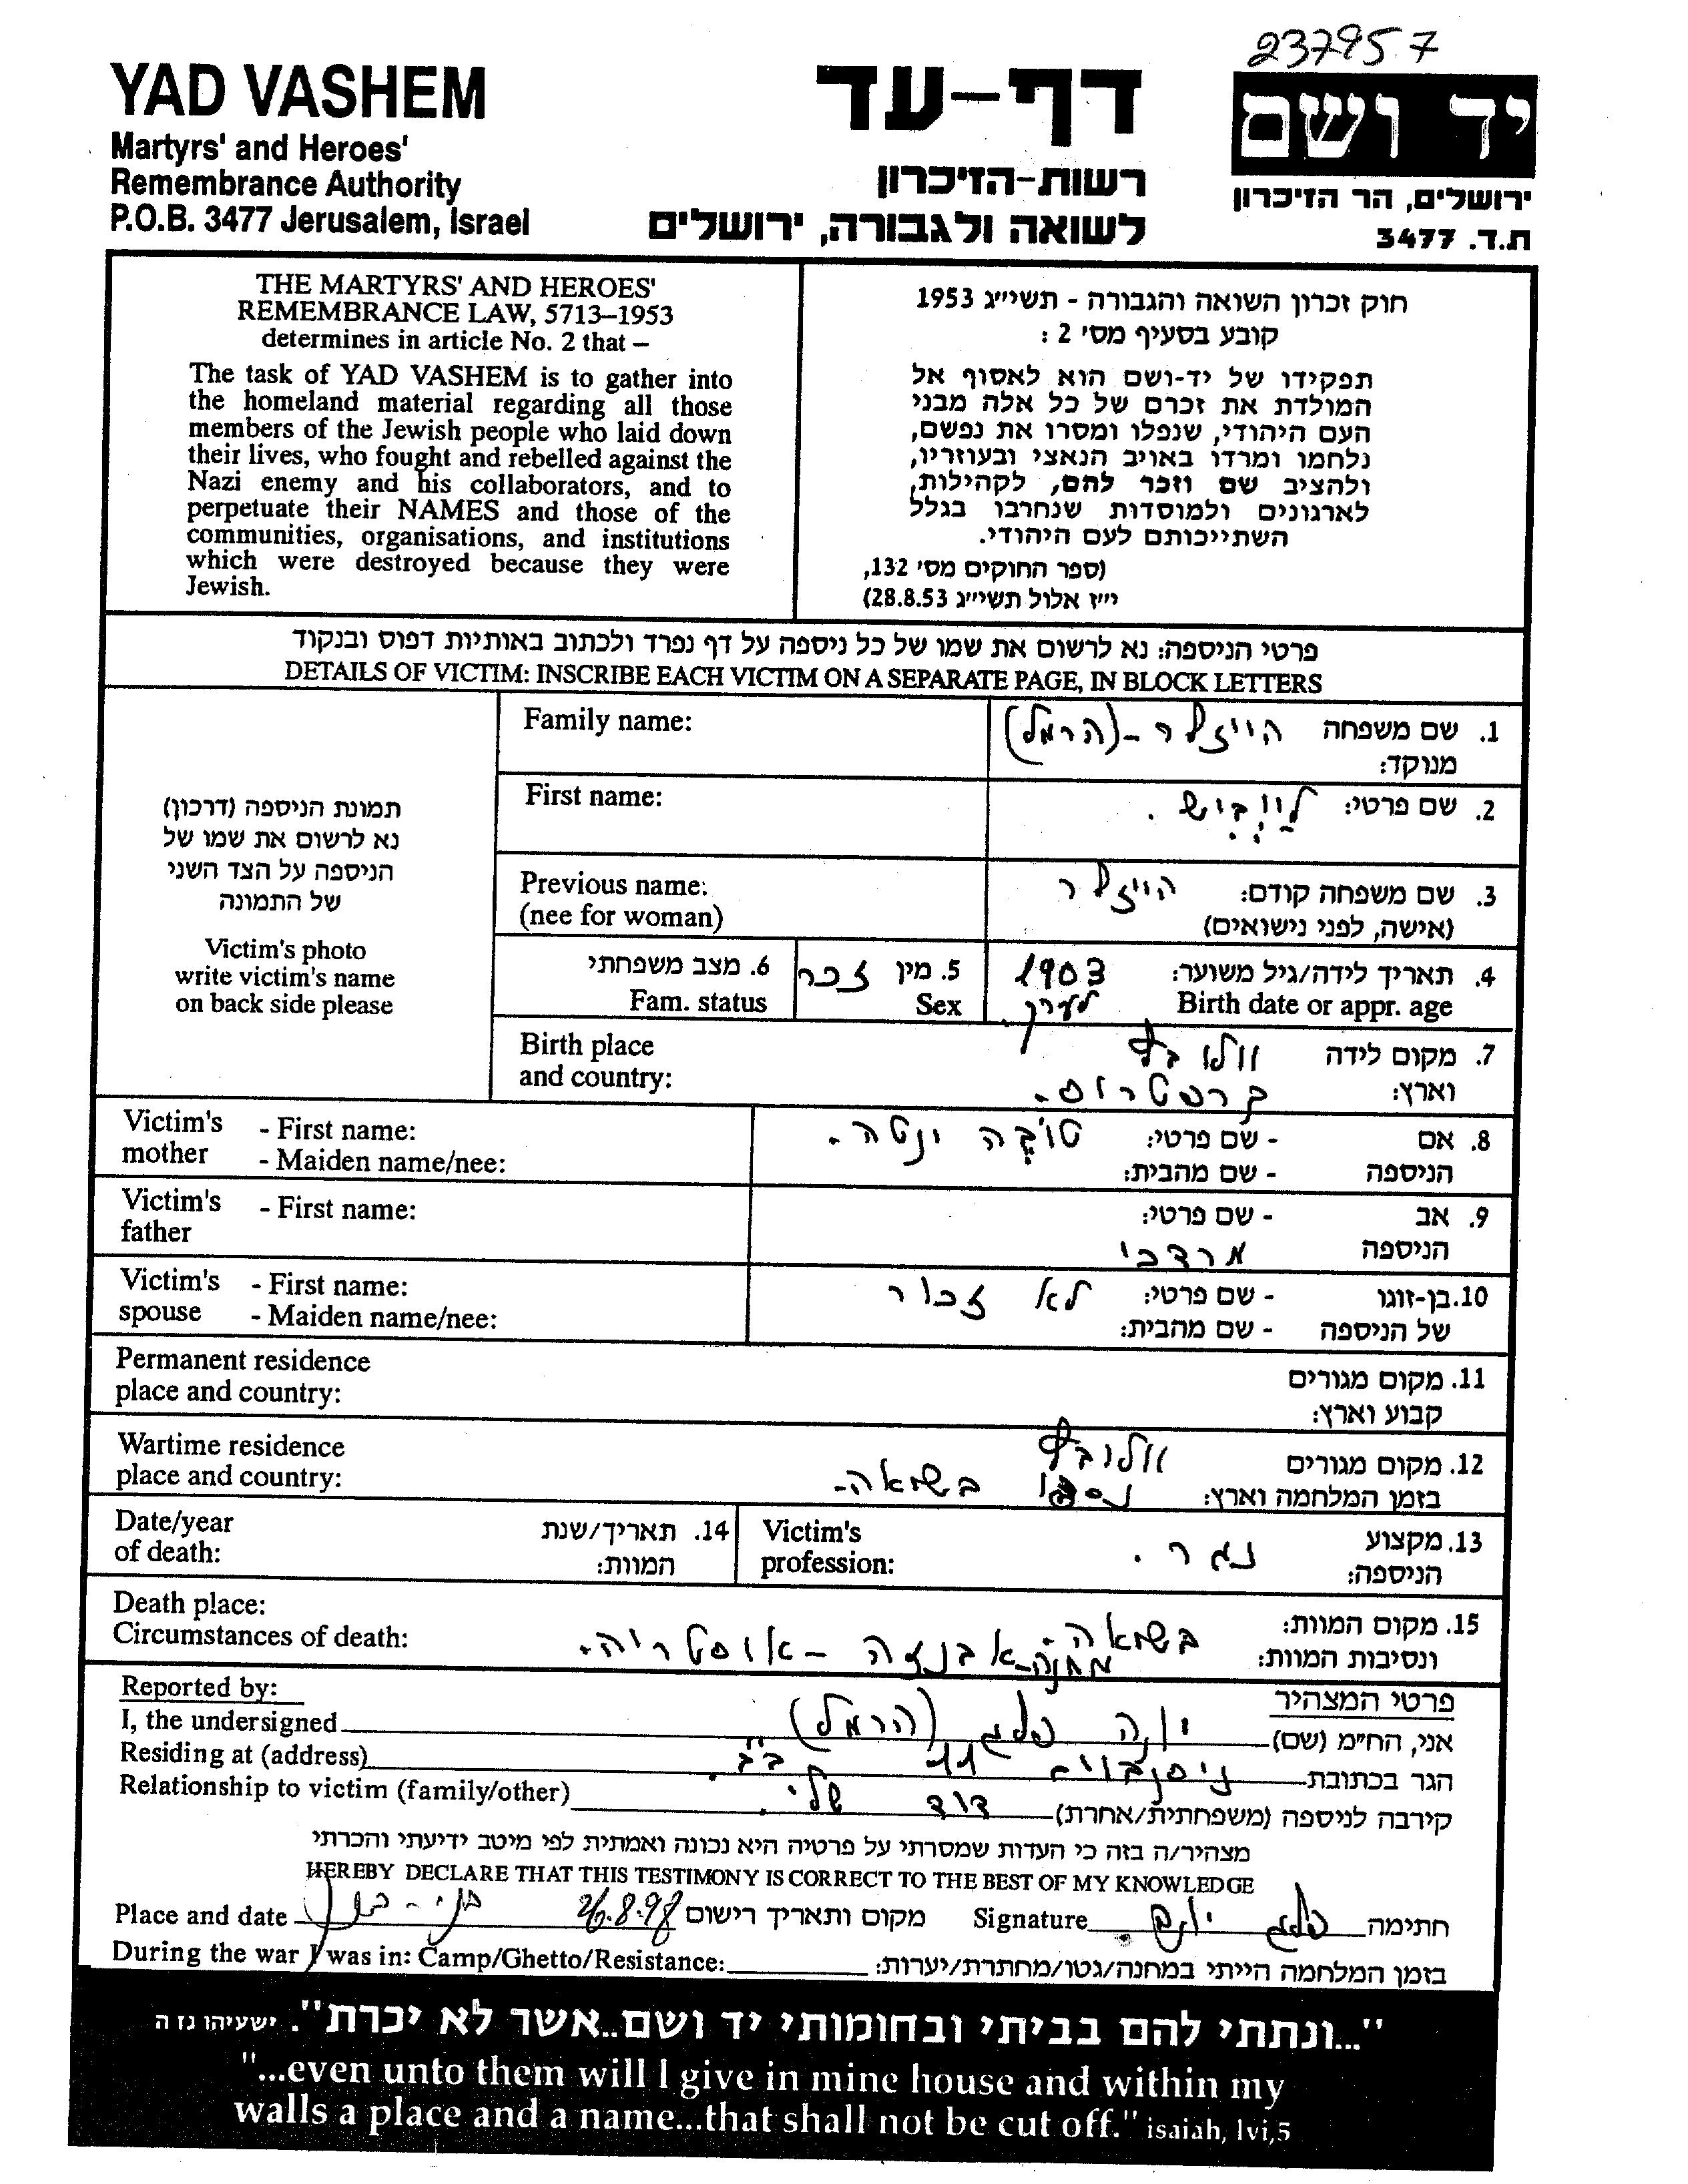 237957
YAD VASHEM
Martyrs' and Heroes'
Remembrance Authority
P.O.B. 3477 Jerusalem, Israel
דף-עד
רשות-הזיכרון
לשואה ולגבורה, ירושלים
יד ושם
ירושלים, הר הזיכרון
ת.ד. 3477
THE MARTYRS' AND HEROES'
REMEMBRANCE LAW, 5713–1953
determines in article No. 2 that –
The task of YAD VASHEM is to gather into
the homeland material regarding all those
members of the Jewish people who laid down
their lives, who fought and rebelled against the
Nazi enemy and his collaborators, and to
perpetuate their NAMES and those of the
communities, organisations, and institutions
which were destroyed because they were
Jewish.
חוק זכרון השואה והגבורה - תשי״ג 1953
קובע בסעיף מס' 2 :
תפקידו של יד-ושם הוא לאסוף אל
המולדת את זכרם של כל אלה מבני
העם היהודי, שנפלו ומסרו את נפשם,
נלחמו ומרדו באויב הנאצי ובעוזריו,
ולהציב שם וזכר להם, לקהילות,
לארגונים ולמוסדות שנחרבו בגלל
השתייכותם לעם היהודי.
(ספר החוקים מס' 132,
י״ז אלול תשי״ג 28.8.53)
פרטי הניספה: נא לרשום את שמו של כל ניספה על דף נפרד ולכתוב באותיות דפוס ובנקוד
DETAILS OF VICTIM: INSCRIBE EACH VICTIM ON A SEPARATE PAGE, IN BLOCK LETTERS
תמונת הניספה (דרכון)
נא לרשום את שמו של
הניספה על הצד השני
של התמונה
Victim's photo
write victim's name
on back side please
Family name:
1. שם משפחה הייזלר - (הרמל)
מנוקד:
First name:
2. שם פרטי: לייביש .
Previous name:
(nee for woman)
3. שם משפחה קודם: הייזלר
(אישה, לפני נישואים)
4. תאריך לידה/גיל משוער: 1903
Birth date or appr. age לערך.
5. מין זכר
Sex
6. מצב משפחתי
Fam. status
Birth place
and country:
7. מקום לידה וולובץ
וארץ: ברפטרוס.
Victim's - First name:
mother - Maiden name/nee:
8. אם - שם פרטי: טובה ינטה.
הניספה - שם מהבית:
Victim's - First name:
father
9. אב - שם פרטי:
הניספה מרדכי
Victim's - First name:
spouse - Maiden name/nee:
10. בן-זוגו - שם פרטי: לא זכור
של הניספה - שם מהבית:
Permanent residence
place and country:
11. מקום מגורים
קבוע וארץ:
Wartime residence
place and country:
12. מקום מגורים וולובץ
בזמן המלחמה וארץ: נספו בשואה.
Date/year
of death:
14. תאריך/שנת
המוות:
Victim's
profession:
13. מקצוע נגר .
הניספה:
Death place:
Circumstances of death:
15. מקום המוות: בשואה.
ונסיבות המוות: מחנה אבנזה - אוסטריה.
Reported by:
פרטי המצהיר
I, the undersigned
אני, הח״מ (שם) יונה פלג (הרמל)
Residing at (address)
הגר בכתובת ניסנבוים 11 ב״ב.
Relationship to victim (family/other)
קירבה לניספה (משפחתית/אחרת) דוד שלי.
מצהיר/ה בזה כי העדות שמסרתי על פרטיה היא נכונה ואמתית לפי מיטב ידיעתי והכרתי
HEREBY DECLARE THAT THIS TESTIMONY IS CORRECT TO THE BEST OF MY KNOWLEDGE
Place and date בני-ברק 26.8.98 מקום ותאריך רישום
Signature פלג יונה חתימה
During the war I was in: Camp/Ghetto/Resistance:
בזמן המלחמה הייתי במחנה/גטו/מחתרת/יערות:
"...ונתתי להם בביתי ובחומותי יד ושם..אשר לא יכרת". ישעיהו נז ה
"...even unto them will I give in mine house and within my
walls a place and a name...that shall not be cut off." isaiah, lvi,5